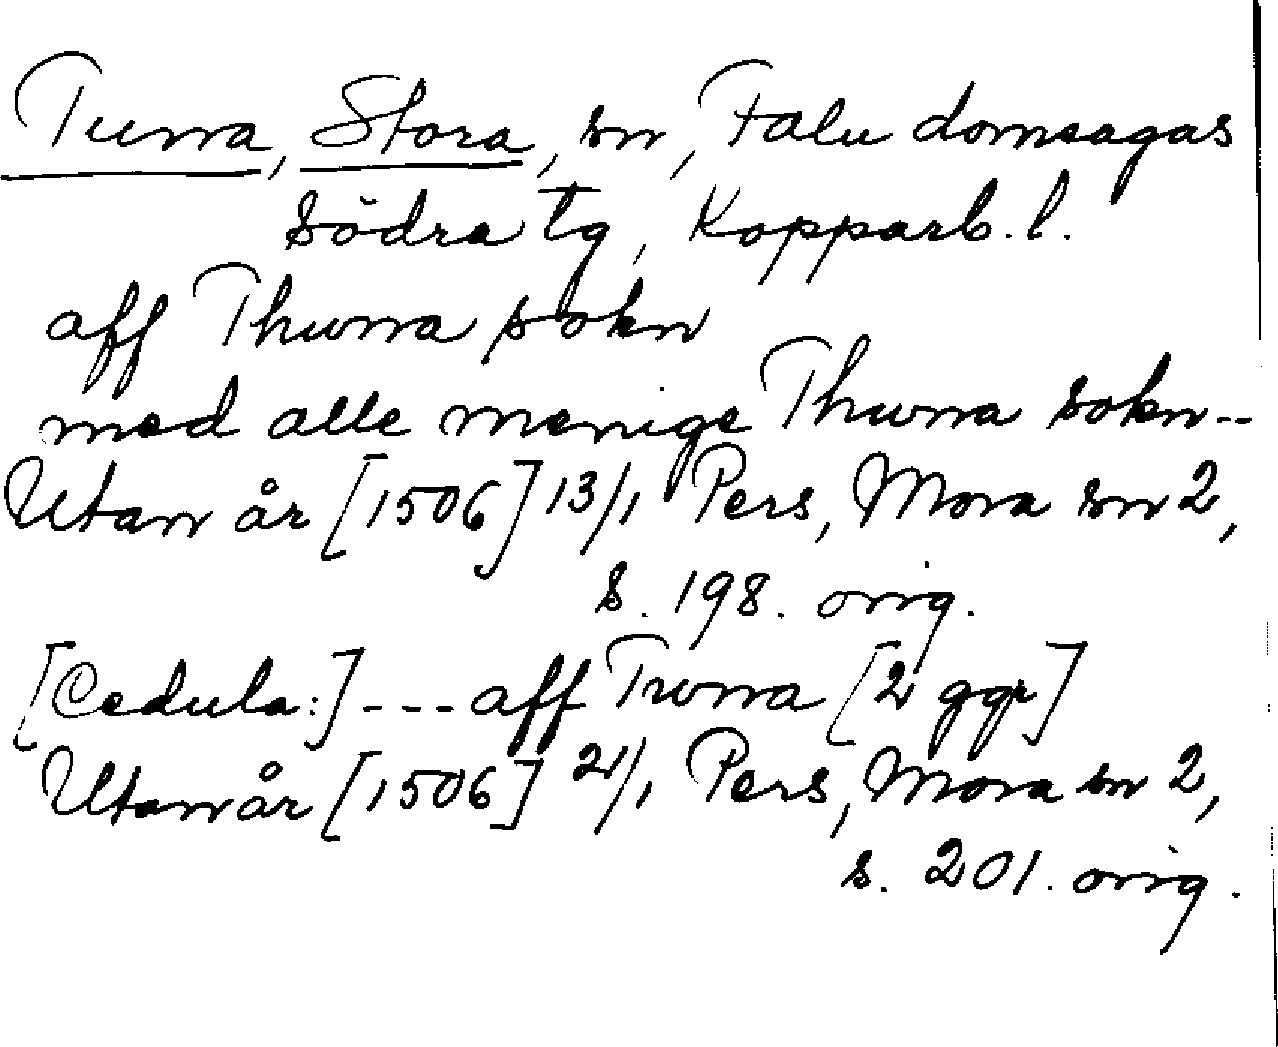 Tuna, Stora, sn, Falu domsagas
södra tg, Kopparb. l.
aff Thuna sokn
med alle menige Thuna sokn--
Utan år [1506] 13/1 Pers, Mora sn 2,
s. 198. orig.
[Cedula:] --- aff Twna [2 ggr]
Utan år [1506] 21/1 Pers, Mora sn 2,
s. 201. orig.